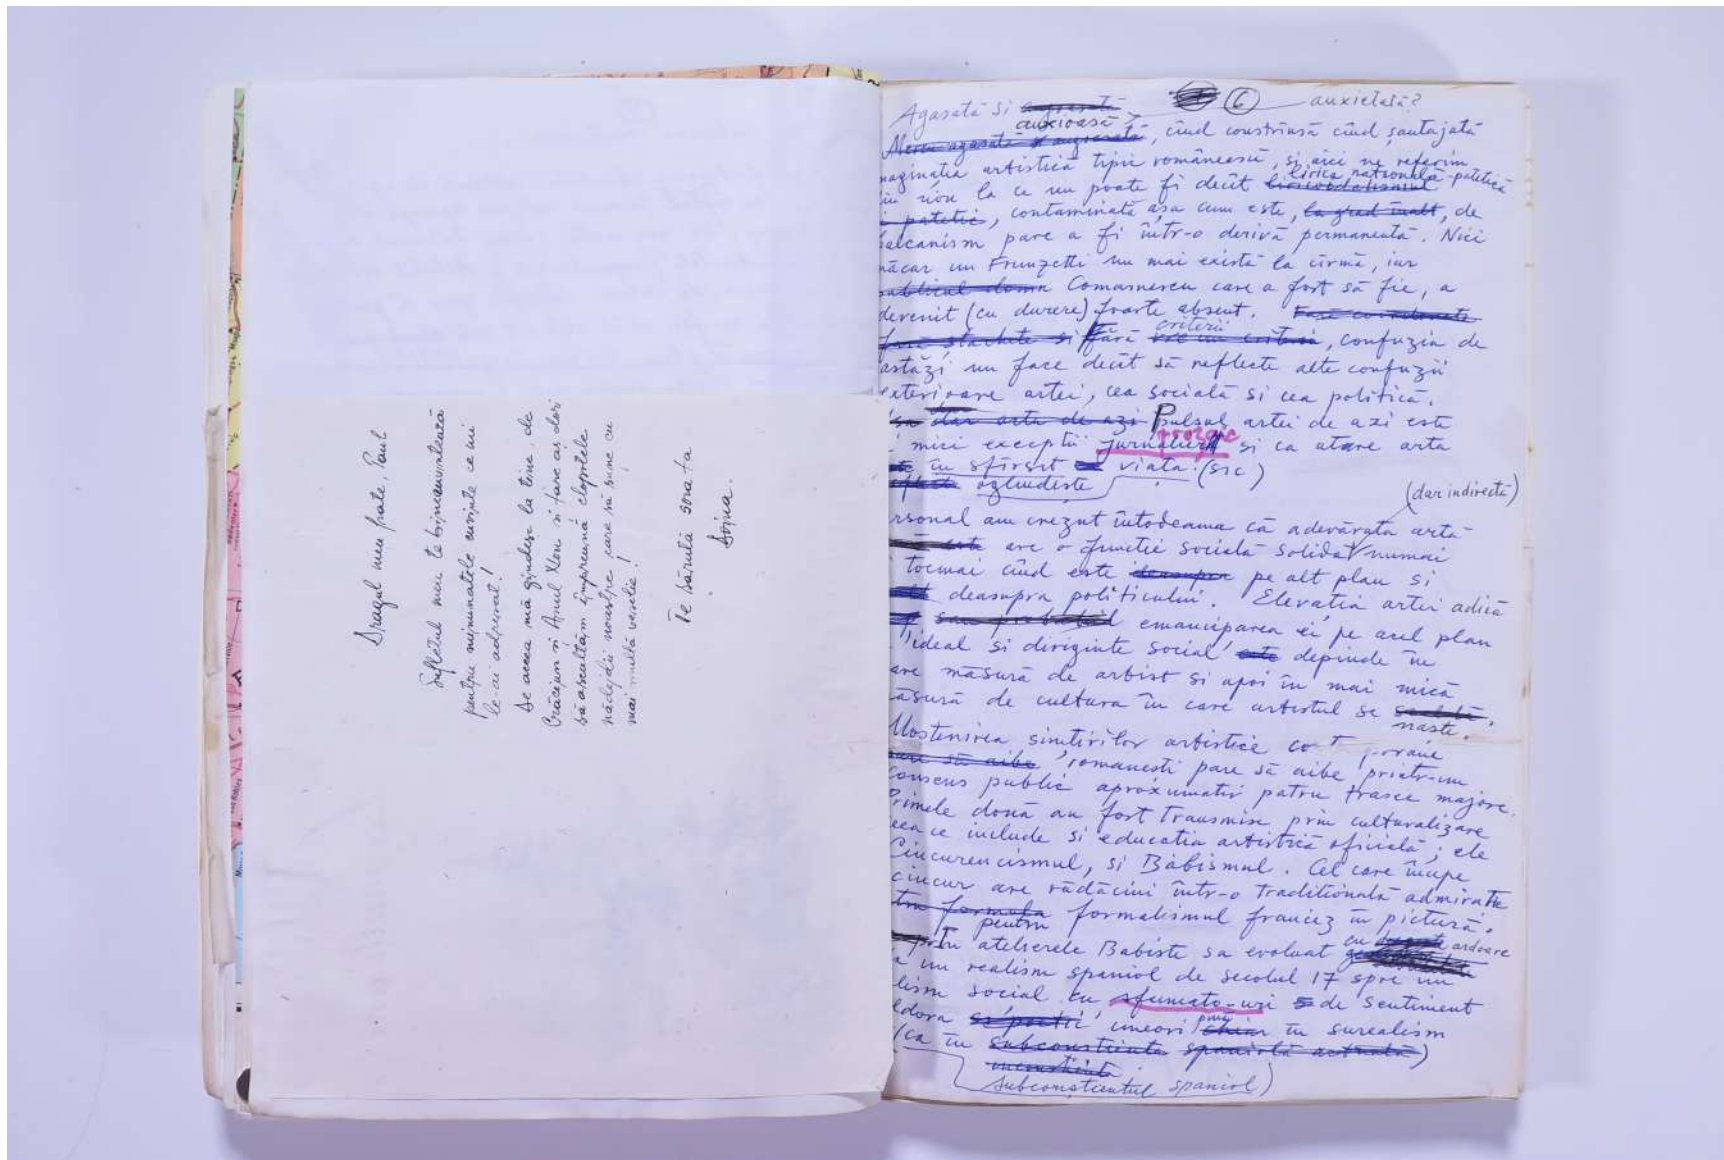 Dragul meu frate, Paul
Sufletul meu te binecuvintează
pentru minunatele cuvinte ce mi
le-ai adresat!
De aceea mă gîndesc la tine, de
Crăciun și Anul Nou și tare aș dori
să ascultăm împreună clopotele
nădejdii noastre care să sune cu
mai multă veselie!
Te sărută sora ta
Agasată si agasată 6 anxietată?
anxioasă
Mereu agasată, cînd constrînsă cînd șantajată
maginatia artistică tipic românească, si aici ne referim
lirica natională-patetică
la ce nu poate fi decît
patetic, contaminată asa cum este, la grad înalt, de
balcanism pare a fi într-o derivă permanentă. Nici
măcar un Frunzetti nu mai există la cîrmă, iar
publicul domn Comarnescu care a fost să fie, a
devenit (cu durere) foarte absent.
criterii
si fără, confuzia de
astăzi nu face decît să reflecte alte confuzii
exterioare artei, cea socială si cea politică.
dar arta de azi Pulsul artei de azi este
prozaic
mici exceptii jurnalier si ca atare arta
în sfîrsit viata. (sic)
oglindeste
(dar indirectă)
rsonal am crezut întodeauna că adevărata artă
are o functie socială solidă numai
tocmai cînd este deasupra pe alt plan si
deasupra politicului. Elevatia artei adică
sau probabil emanciparea ei, pe acel plan
ideal si diriginte social este depinde în
are măsură de artist si apoi în mai mică
ăsură de cultura în care artistul se
naste.
Mostenirea simtirilor artistice
pare să aibe romanesti pare să aibe printr-un
consens public aproximativ patru trasee majore.
Primele două au fost transmise prin culturalizare
eea ce include si educatia artistică oficială; ele
Ciucurencismul, si Băbismul. Cel care începe
ciucur are rădăcini într-o traditională admiratie
formula formalismul francez în pictură.
pentru
prin atelierele Babiste sa evoluat cu ardoare
a un realism spaniol de secolul 17 spre un
lism social cu sfumato-uri de sentiment
ldora si poetic, uneori chiar în surealism
(ca în subconstienta spaniolă actuală)
inconstienta
subconștientul spaniol)